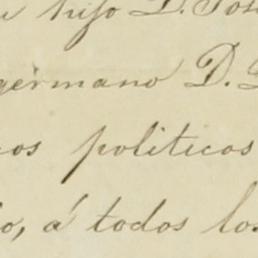 hijo D. José
germano D.
cos politicos
o, á todos los